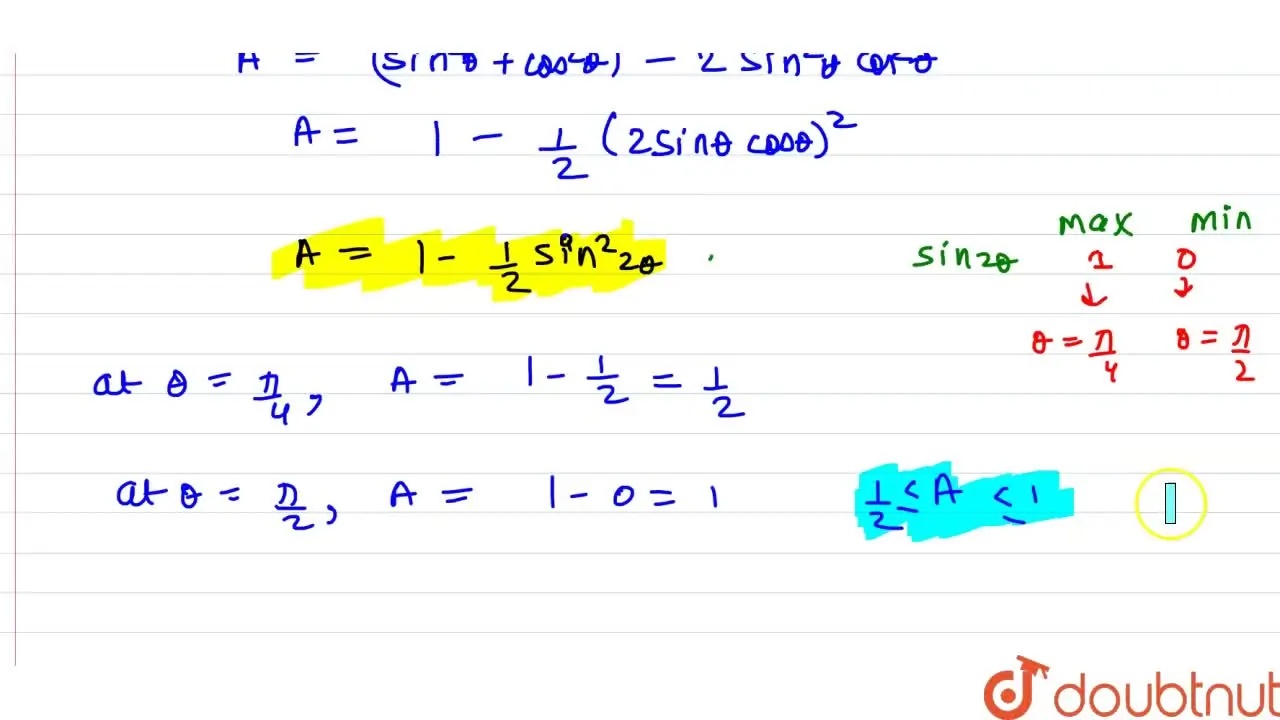 A = (sin²θ + cos²θ) - 2 sin²θ cos²θ
A = 1 - 1/2 (2sinθ cosθ)²
max min
A = 1 - 1/2 sin²2θ . sin2θ 1 0
↓ ↓
θ = π/4 θ = π/2
at θ = π/4, A = 1 - 1/2 = 1/2
at θ = π/2, A = 1 - 0 = 1 1/2 ≤ A ≤ 1
doubtnut